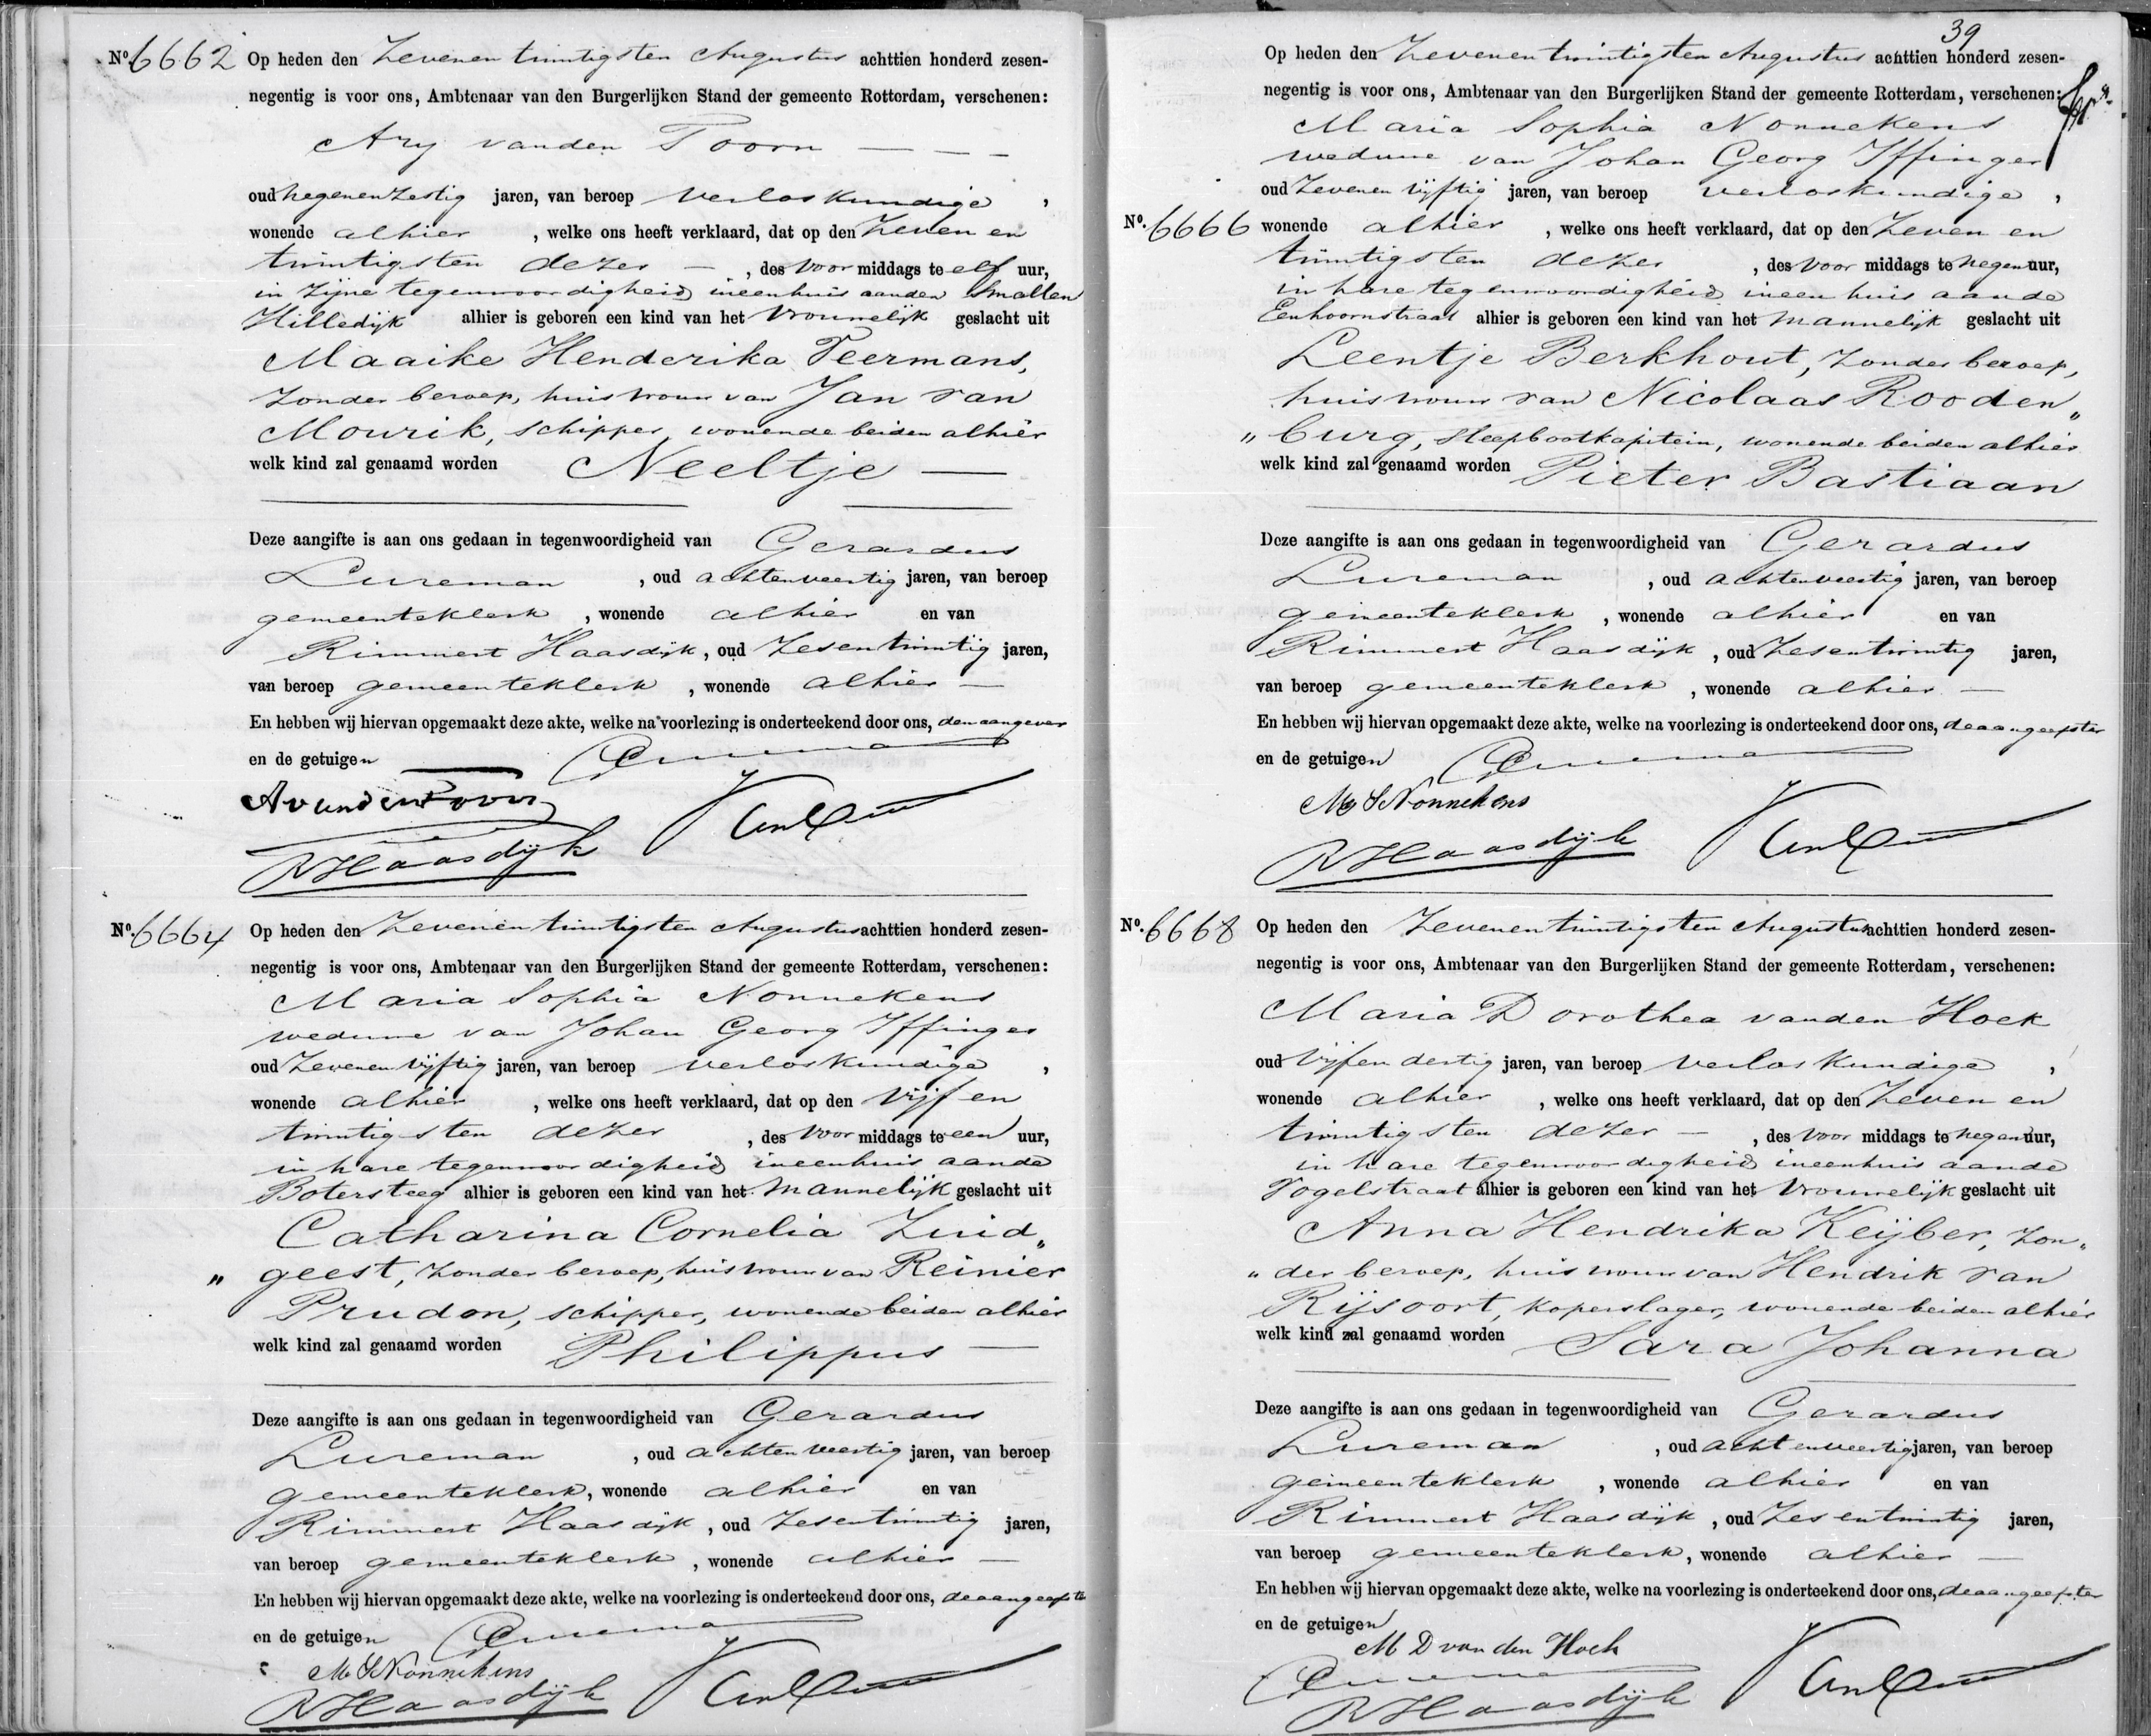 No. 6662 Op heden den Zevenentwintigsten Augustus achttien honderd zesen-
negentig is voor ons, Ambtenaar van den Burgerlijken Stand der gemeente Rotterdam, verschenen:
Ary van den Toorn
oud Negenenzestig jaren, van beroep verloskundige ,
wonende alhier , welke ons heeft verklaard, dat op den Zeven en
twintigsten dezer — , des voor middags te elf uur,
in zijne tegenwoordigheid in een huis aan den Smallen
Hilledijk alhier is geboren een kind van het vrouwelijk geslacht uit
Maaike Henderika Teermans,
zonder beroep, huisvrouw van Jan van
Mourik, schipper, wonende beiden alhier
welk kind zal genaamd worden Neeltje —
Deze aangifte is aan ons gedaan in tegenwoordigheid van Gerardus
Lureman , oud achtenveertig jaren, van beroep
gemeenteklerk , wonende alhier en van
Rimmert Haasdijk , oud Zesentwintig jaren,
van beroep gemeenteklerk , wonende alhier —
En hebben wij hiervan opgemaakt deze akte, welke na voorlezing is onderteekend door ons, den aangever
en de getuigen
A van den Toorn
R Haasdijk
No. 6664 Op heden den Zevenentwintigsten Augustus achttien honderd zesen-
negentig is voor ons, Ambtenaar van den Burgerlijken Stand der gemeente Rotterdam, verschenen:
Maria Sophia Nonnekens
weduwe van Johan Georg Iffinger
oud Zevenenvijftig jaren, van beroep verloskundige ,
wonende alhier , welke ons heeft verklaard, dat op den vijf en
twintigsten dezer , des voor middags te een uur,
in hare tegenwoordigheid in een huis aan de
Botersteeg alhier is geboren een kind van het mannelijk geslacht uit
Catharina Cornelia Zuid„
„ geest, zonder beroep, huisvrouw van Reinier
Prudon, schipper, wonende beiden alhier
welk kind zal genaamd worden Philippus —
Deze aangifte is aan ons gedaan in tegenwoordigheid van Gerardus
Lureman , oud achtenveertig jaren, van beroep
gemeenteklerk , wonende alhier en van
Rimmert Haasdijk , oud Zesentwintig jaren,
van beroep gemeenteklerk , wonende alhier —
En hebben wij hiervan opgemaakt deze akte, welke na voorlezing is onderteekend door ons, de aangeefster
en de getuigen
M S Nonnekens
R Haasdijk
39
Op heden den Zevenentwintigsten Augustus achttien honderd zesen-
negentig is voor ons, Ambtenaar van den Burgerlijken Stand der gemeente Rotterdam, verschenen:
Maria Sophia Nonnekens
weduwe van Johan Georg Iffinger
oud Zevenenvijftig jaren, van beroep verloskundige ,
No. 6666 wonende alhier , welke ons heeft verklaard, dat op den Zeven en
twintigsten dezer , des voor middags te negen uur,
in hare tegenwoordigheid in een huis aan de
Eenhoornstraat alhier is geboren een kind van het mannelijk geslacht uit
Leentje Berkhout, zonder beroep,
huisvrouw van Nicolaas Rooden„
„ burg, sleepbootkapitein, wonende beiden alhier
welk kind zal genaamd worden Pieter Bastiaan
Deze aangifte is aan ons gedaan in tegenwoordigheid van Gerardus
Lureman , oud achtenveertig jaren, van beroep
gemeenteklerk , wonende alhier en van
Rimmert Haasdijk , oud Zesentwintig jaren,
van beroep gemeenteklerk , wonende alhier —
En hebben wij hiervan opgemaakt deze akte, welke na voorlezing is onderteekend door ons, de aangeefster
en de getuigen
M S Nonnekens
R Haasdijk
No. 6668 Op heden den Zevenentwintigsten Augustus achttien honderd zesen-
negentig is voor ons, Ambtenaar van den Burgerlijken Stand der gemeente Rotterdam, verschenen:
Maria Dorothea van den Hoek
oud vijfendertig jaren, van beroep verloskundige ,
wonende alhier , welke ons heeft verklaard, dat op den Zeven en
twintigsten dezer — , des voor middags te negen uur,
in hare tegenwoordigheid in een huis aan de
Vogelstraat alhier is geboren een kind van het vrouwelijk geslacht uit
Anna Hendrika Keijber, zon„
„ der beroep, huisvrouw van Hendrik van
Rijsoort, koperslager, wonende beiden alhier
welk kind zal genaamd worden Sara Johanna
Deze aangifte is aan ons gedaan in tegenwoordigheid van Gerardus
Lureman , oud achtenveertig jaren, van beroep
gemeenteklerk , wonende alhier en van
Rimmert Haasdijk , oud Zesentwintig jaren,
van beroep gemeenteklerk , wonende alhier —
En hebben wij hiervan opgemaakt deze akte, welke na voorlezing is onderteekend door ons, de aangeefster
en de getuigen
M D van den Hoek
R Haasdijk